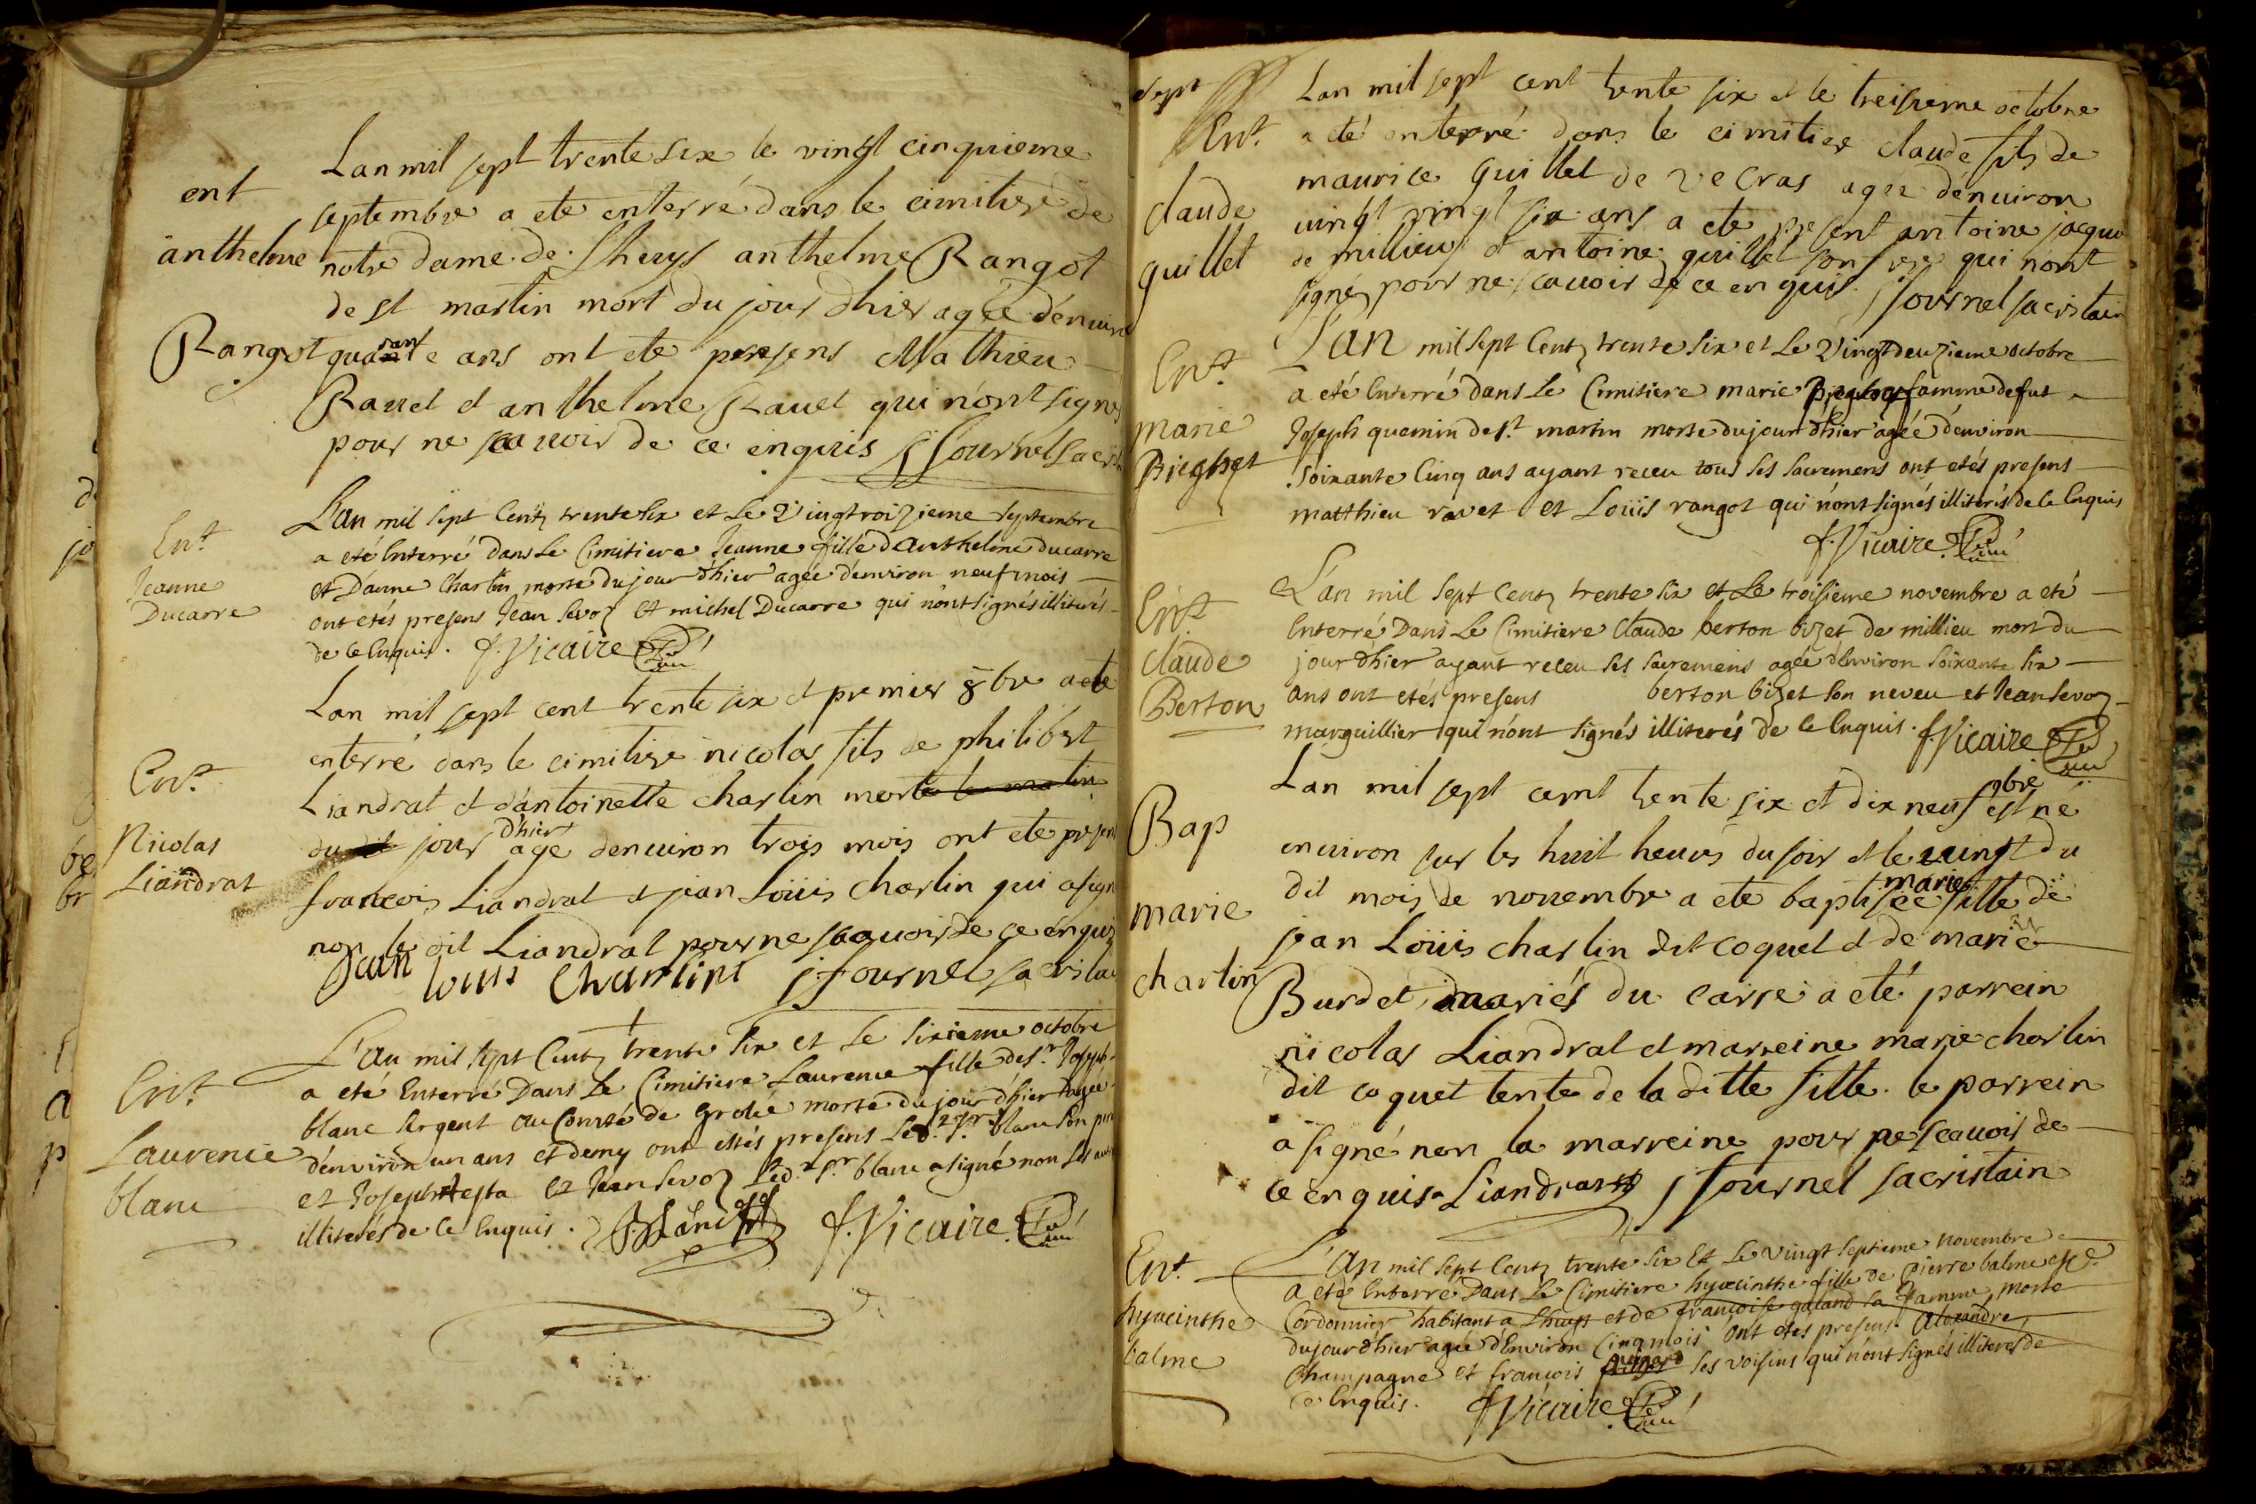 ent
anthelme
Rangot
Lan mil sept trente six le vingt cinquieme
septembre a ete enterré dans le cimitiere de
notre dame de Lhuys anthelme Rangot
de st martin mort du jour dhier agée dénuiron
quarante ans ont ete presens Mathieu
Rauet et anthelme Rauet qui nónt signés
pour ne scauoir de ce enquis j Journel sacris
Ent
Jeanne
Ducarre
L'an mil sept Cent trente six et Le Vingtroizieme septembre
a eté Enterré dans Le Cimitiere Jeanne fille dAnthelme ducarre
et Danne Charlin morte du jour d'hier agée d'environ neuf mois
ont etés presens Jean sevoz et michel Ducarre qui n'ont signés illiterés
de ce Enquis. f. Vicaire
Ent
Nicolas
Liandrat
Lan mil sept cent trente six et premier 8bre a ete
enterré dans le cimitiere nicolas fils de philibert
Liandrat et dántoinette charlin morte le matin
du dit jour dhier age denuiron trois mois ont ete presen
francois Liandrat et jean Loüis charlin qui a signe
non le dit Liandrat pour ne scauoir de ce énquis
Jean louis Charlint j Journel sacristai
Ent
Laurence
blanc
L'an mil sept Cent trente six et Le sixieme octobre
a ete Enterré Dans Le Cimitiere Laurence fille de sr Joseph
blanc sergent au Comté de Groleé morte du jour d'hier agée
d'environ un ans et demy ont estés presens Led. sr. blanc son pere
et Joseph testa et Jean Sevoz Led. sr. blanc a signé non Les aut
illiterés de ce Enquis. Blanc f. Vicaire
sept
Ent
claude
quillet
Lan mil sept cent trente six et le treisieme octobre
a eté enterré dans le cimitier claude fils de
maurice Quillet de Vecras agée dénuiron
uingt vingt six ans a ete present antoine jaque
de millieu et antoine quillet son frere qui nont
signé pour ne scauoir de ce enquis. j Journel sacristain
Ent
marie
L'an mil sept Cent trente six et Le Vingtdeuzieme octobre
a eté Enterré dans Le Cimitiere marie famme de fut
Joseph quemin de st. martin morte du jour d'hier agéé d'environ
soixante Cinq ans ayant receu tous ses sacremens ont etés presens
matthieu ravet et Loüis rangot qui n'ont signés illiterés de ce Enquis
f. Vicaire
Ent
Claude
Berton
L'an mil sept Cent trente six et Le troisieme novembre a eté
Enterré Dans Le Cimitiere Claude berton bizet de millieu mort du
jour d'hier ayant receu ses sacremens agée d'Environ soixante six
ans ont etés presens berton bizet son neveu et Jean sevoz
marguillier qui n'ont signés illiterés de ce Enquis. f. Vicaire
Bap
marie
charlin
Lan mil sept cent trente six et dix neuf 9bre est né
enuiron sur les huit heures du soir et le uingt du
dit mois de nouembre a ete baptisée marie fille de
jean Loüis charlin dit coquet et de marie
Burdet mariés du carre a eté parrein
nicolas Liandrat et marreine marie charlin
dit coquet tente de la ditte fille. le parrein
a signé non la marreine pour ne scauoir de
ce enquis Liandrat j Journel sacristain
Ent
hyacinthe
balme
L'an mil sept Cent trente six Et Le vingt septieme novembre
a eté Enterré Dans Le Cimitiere hyacinthe fille de pierre balme
Cordonnier habitant a Lhuys et de françoise galand sa famme, morte
du jour d'hier agée d'Environ Cinq mois ont etes presens Alexandre
Champagne et francois ses voisins qui n'ont signés illiterés de
Ce Enquis. f. Vicaire